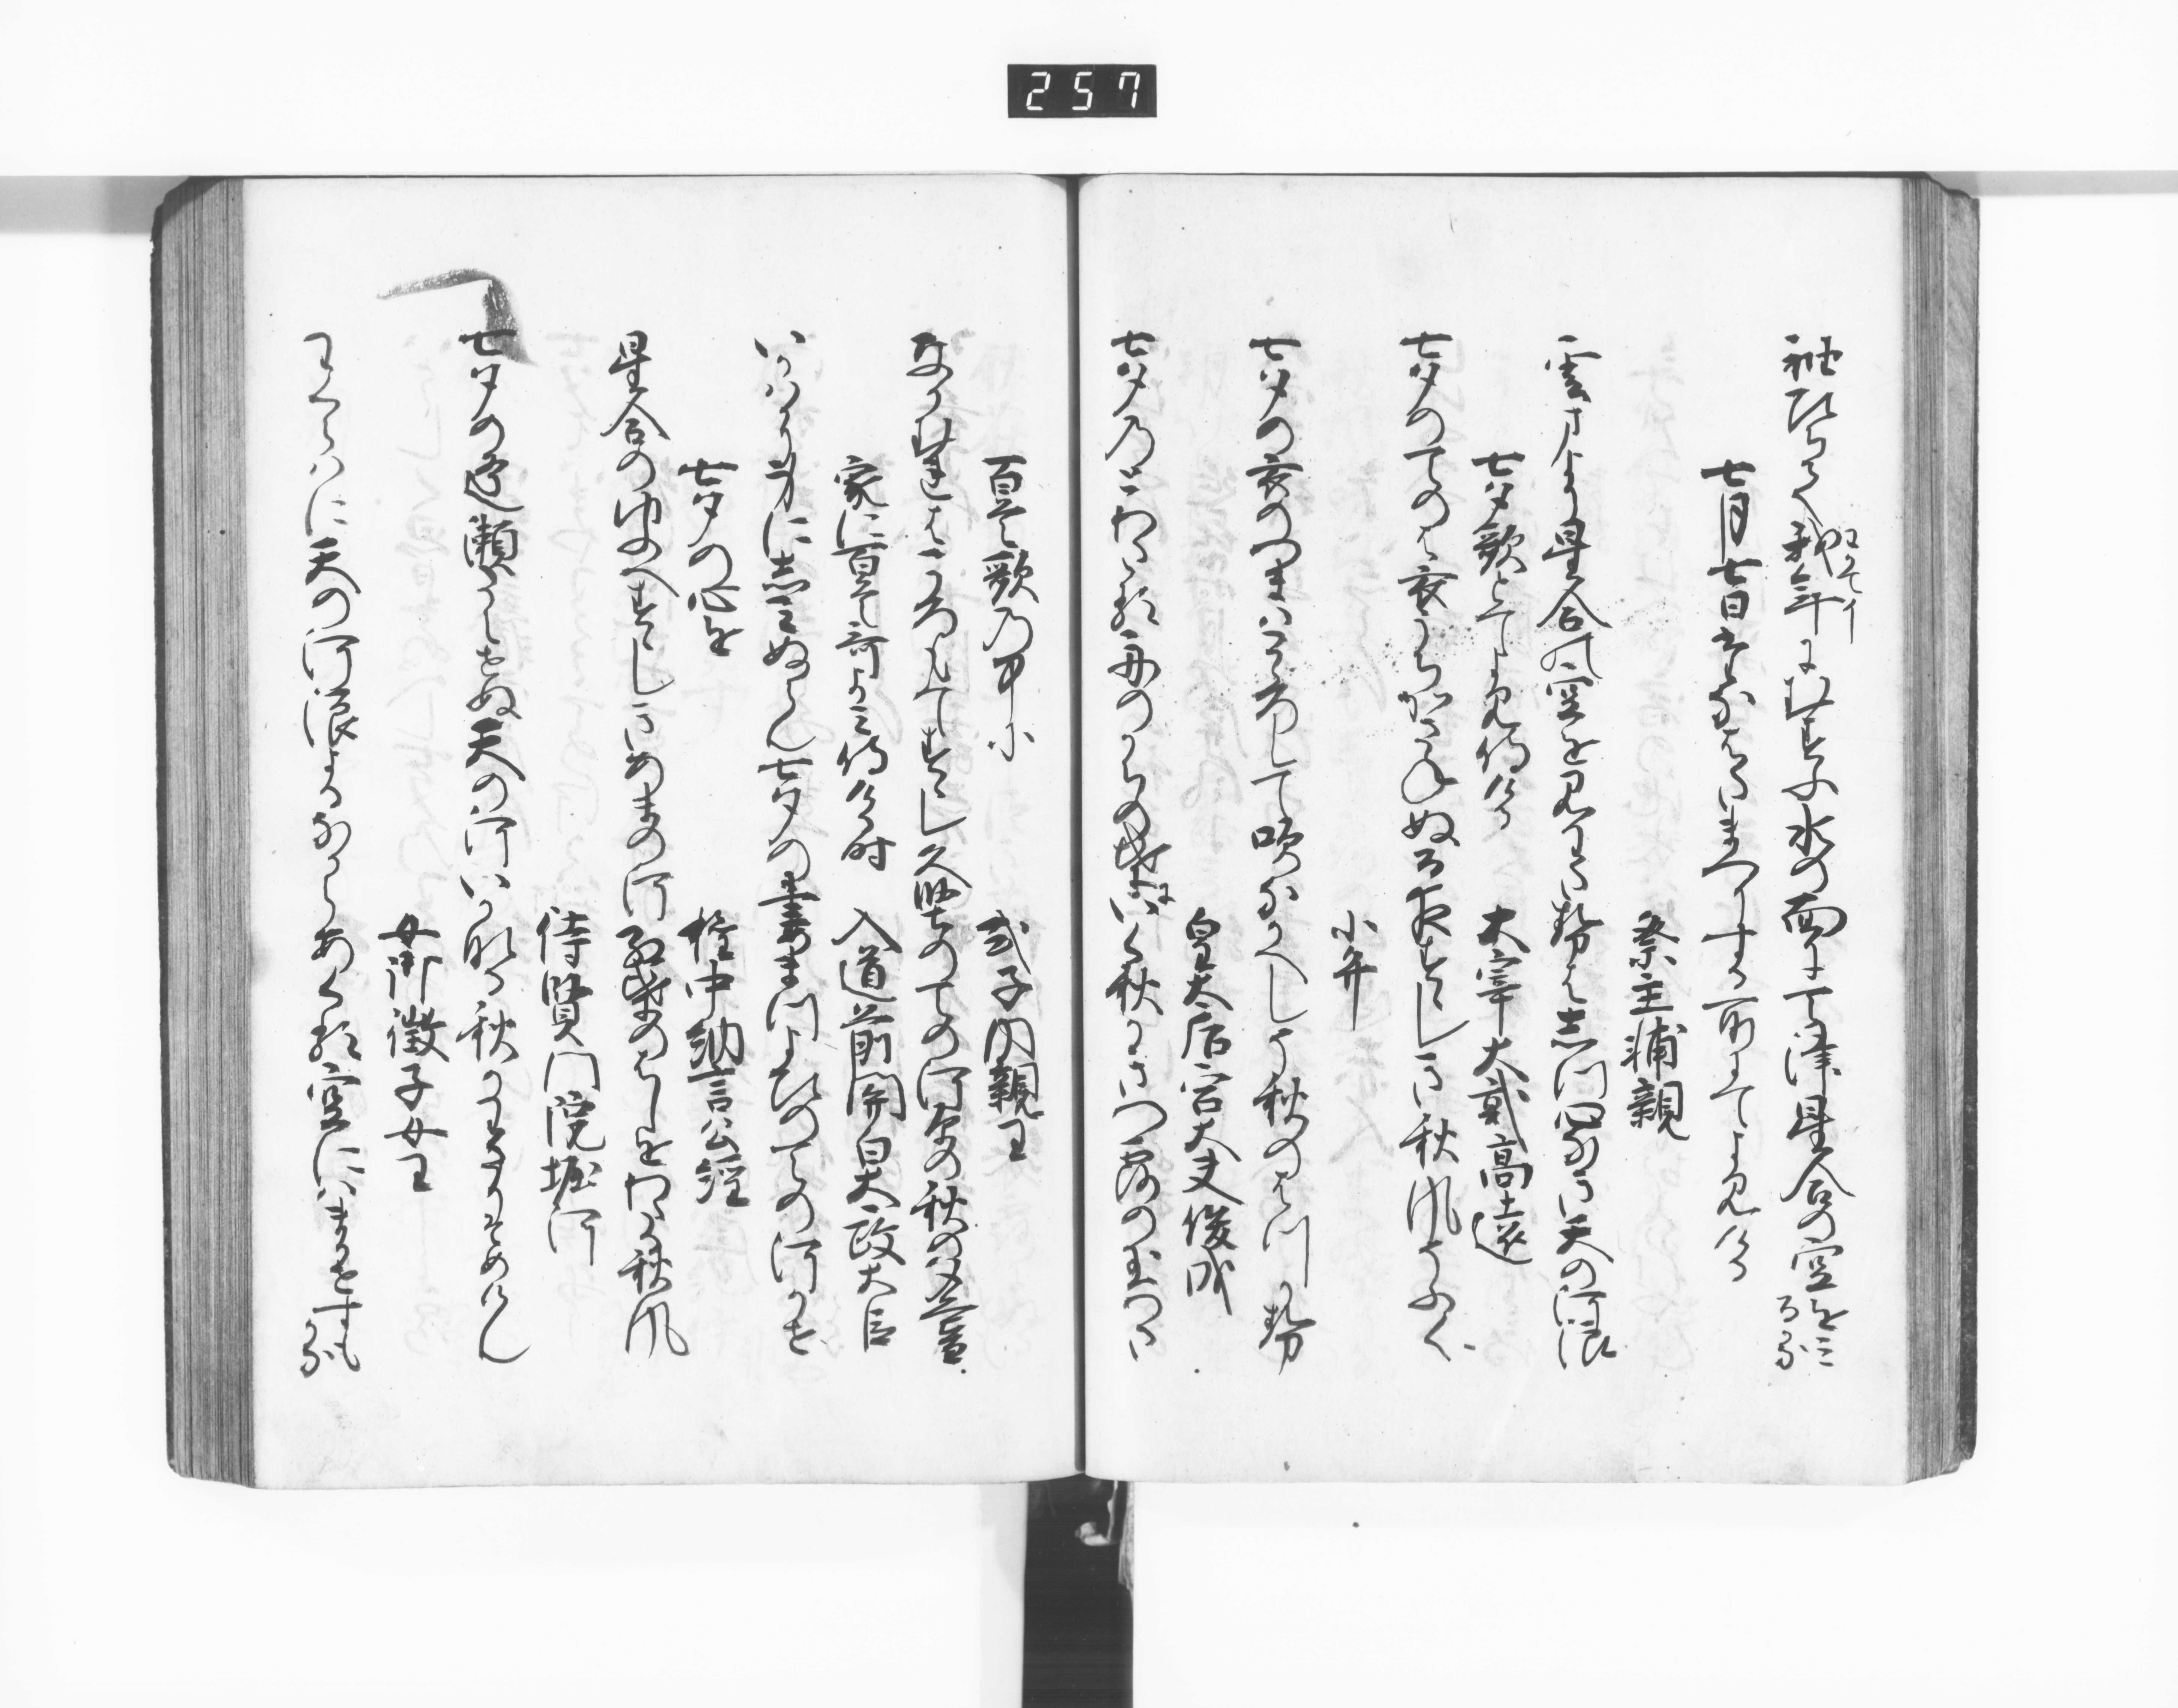 257
袖ひちて我年にむすふ水の面に天津星合の空をみるかな
わかてイ
七月七日たなはたまつりする所にてよみける
祭主輔親
雲まより星合の空を見わたせはしつ心なき天の河浪
七夕歌とてよみ侍ける
大宰大貳高遠
七夕の天の羽衣うちかさねぬる夜すゝしき秋風そふく
小弁
七夕の衣のつまは心して吹なかへしそ秋のはつ風
皇太后宮大夫俊成
七夕のとわたる舟のかちの葉にいく秋かきつ露の玉つさ
百首歌の中に
式子内親王
なかむれは衣手すゝし久堅の天の河原の秋の夕暮
家に百首哥よみ侍ける時
入道前関白太政大臣
いかはかり身にしみぬらん七夕の妻まつよひの天の河かせ
七夕の心を
権中納言公経
星合の夕へすゝしきあまの河紅葉のはしをわたる秋風
待賢門院堀河
七夕の逢瀬たえせぬ天の河いかなる秋かわたりそめけん
女御徽子女王
わくらはに天の河浪よるなからあくる空にはまかせすもかな